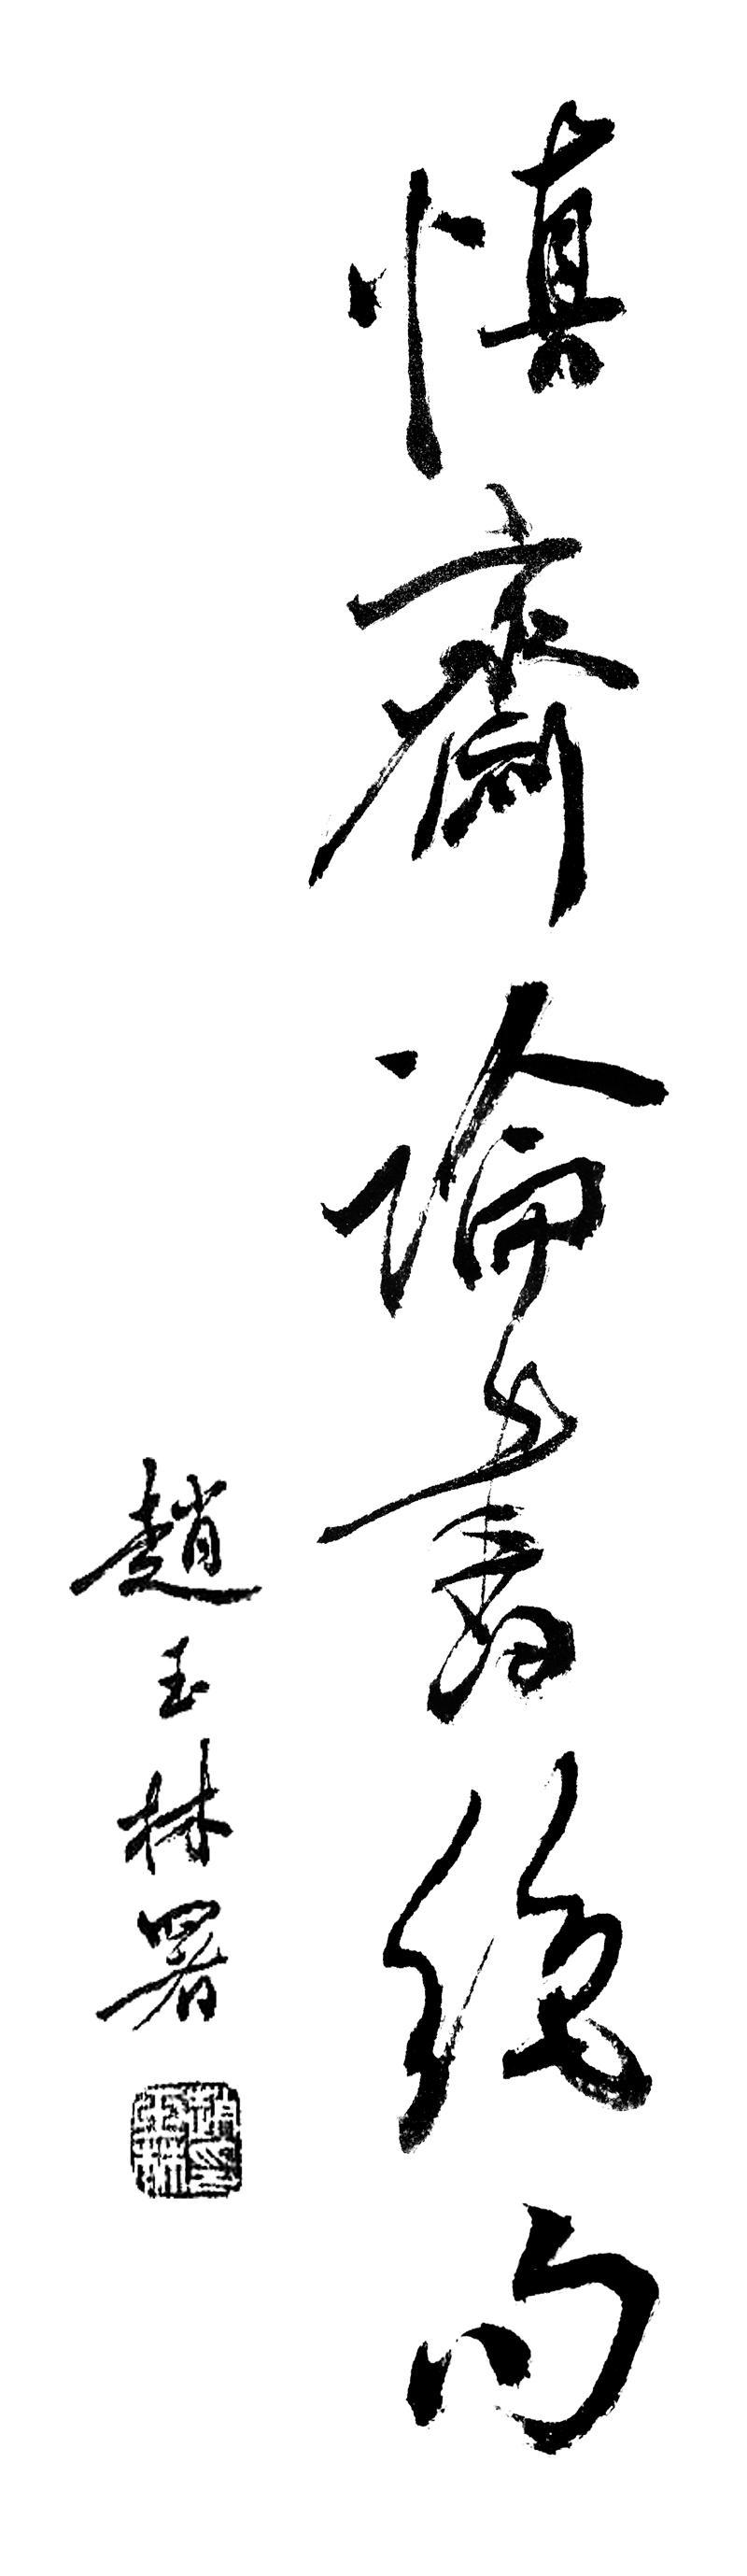 慎齋論書絶句
趙玉林署
趙玉林印